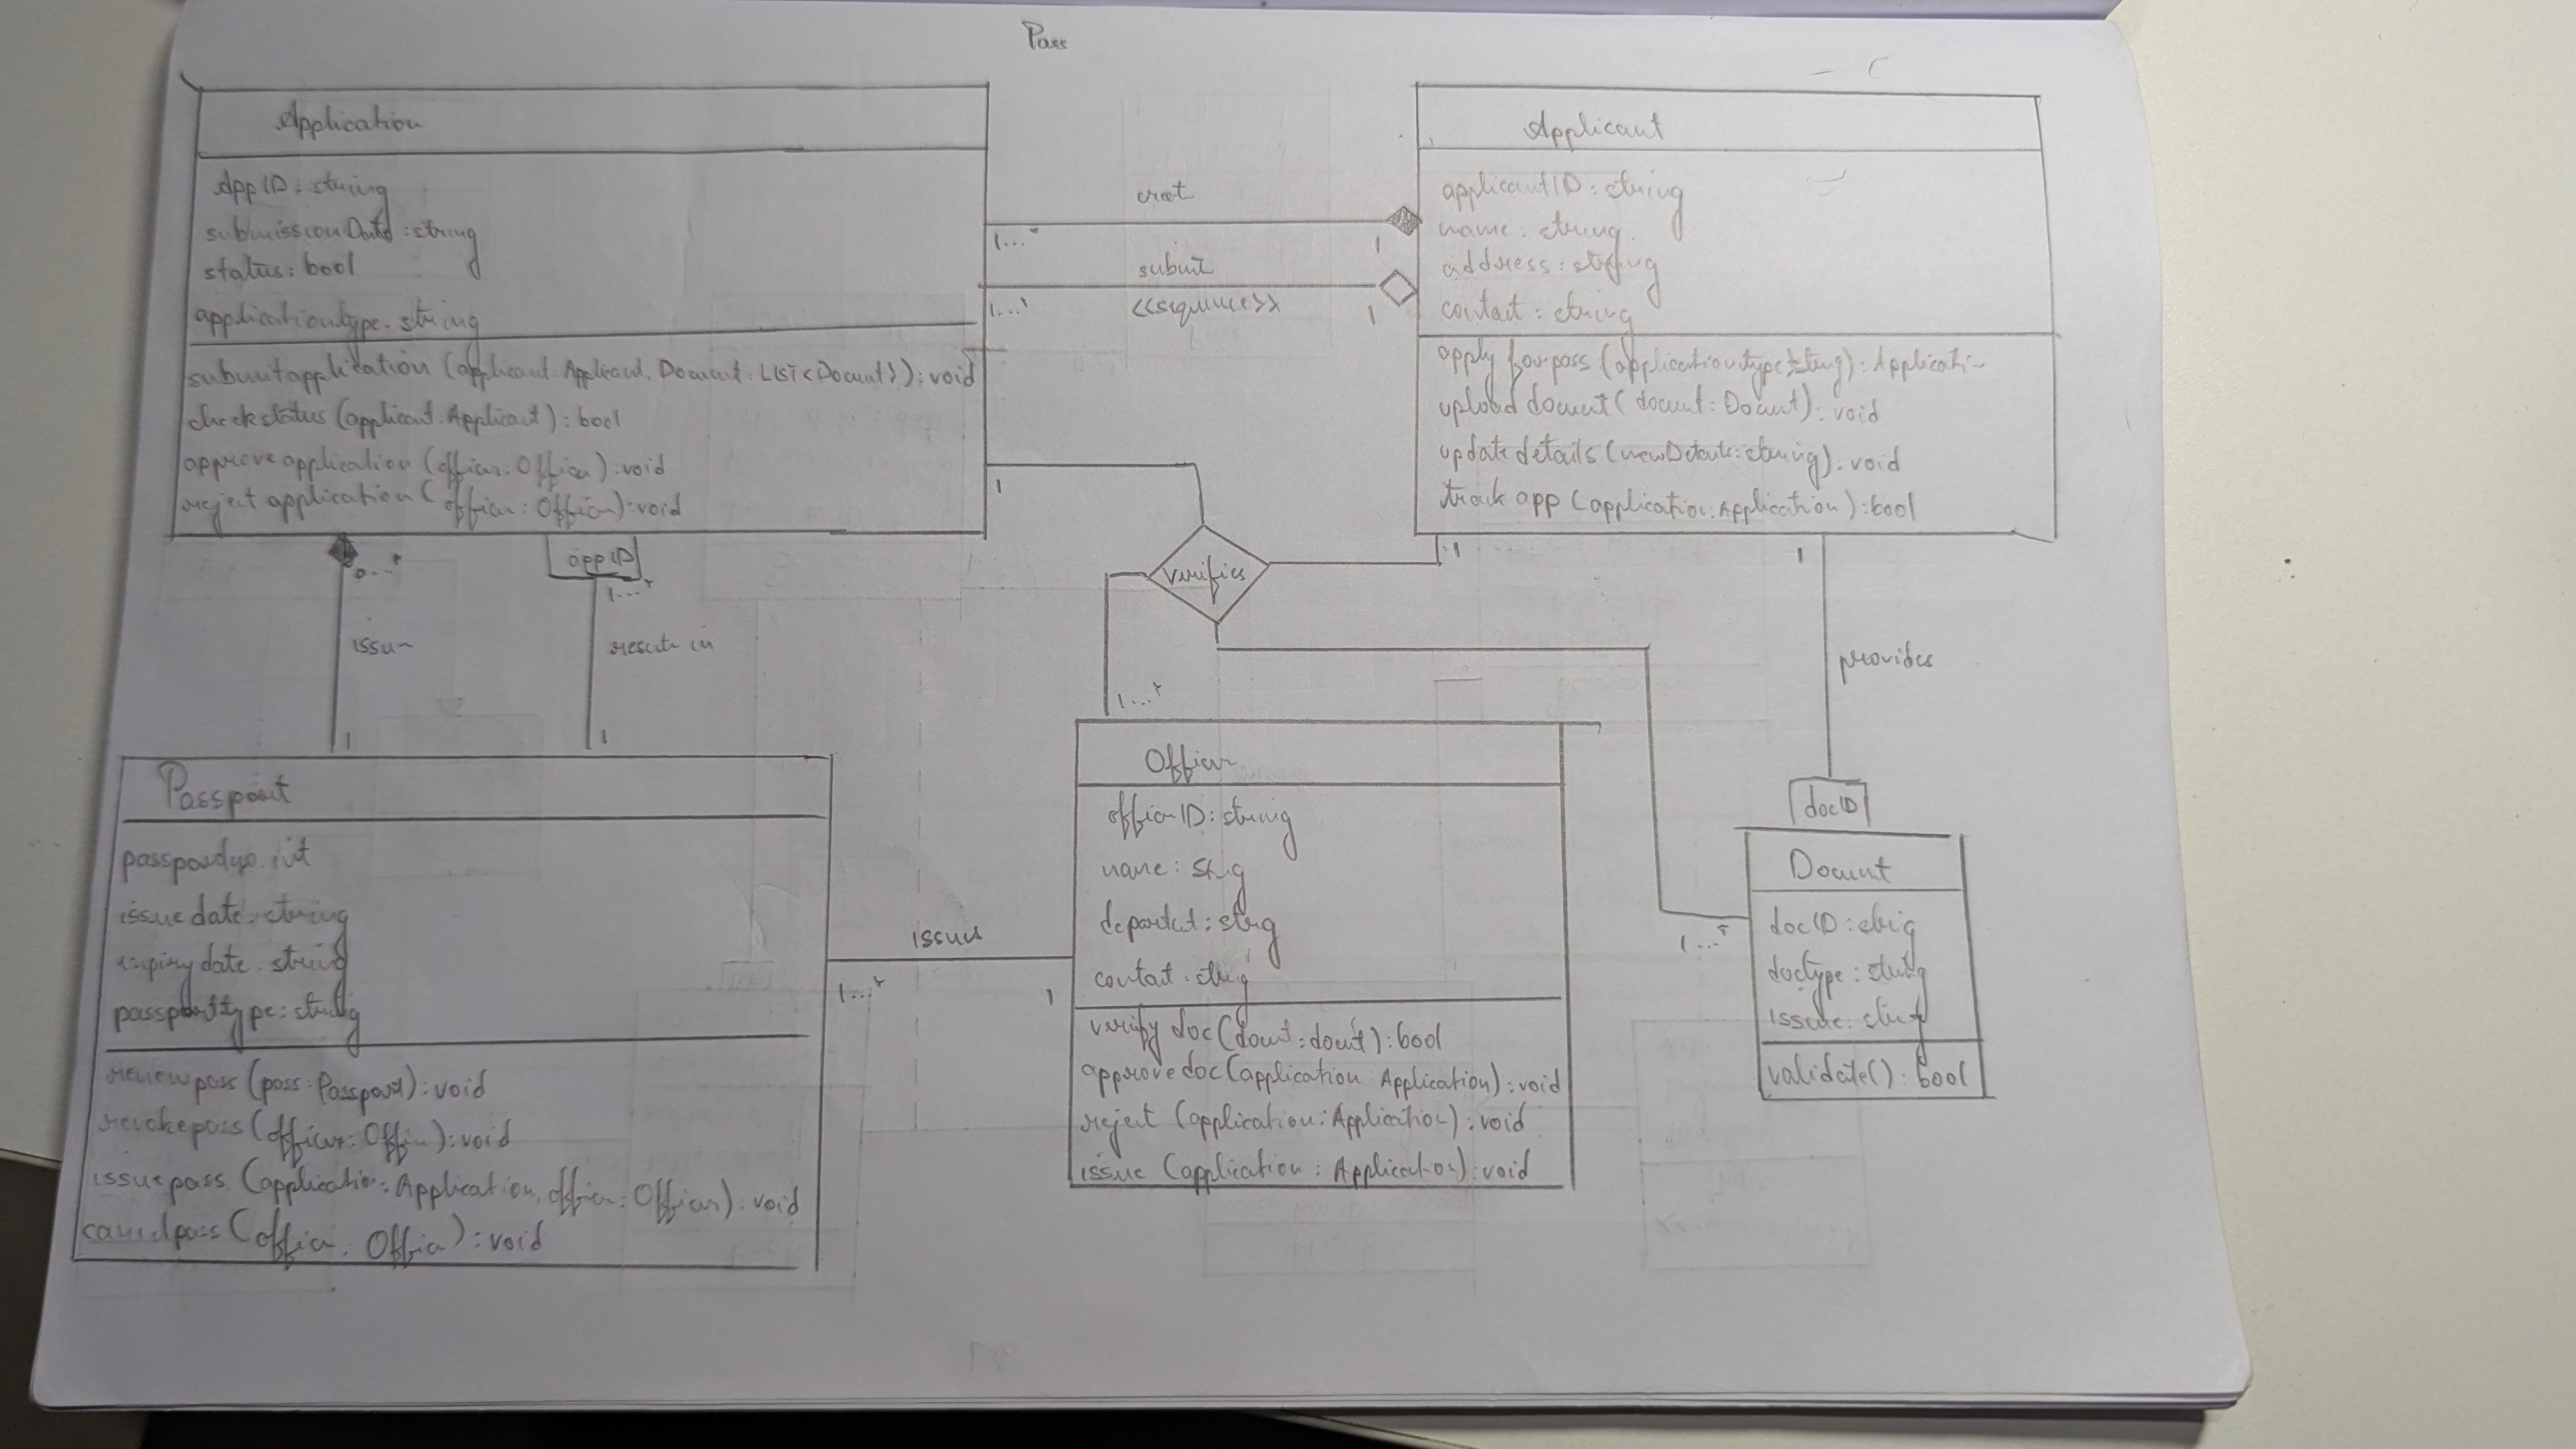 Pass
Application
AppID: string
submissionDate: string
status: bool
applicationtype: string
submitapplication (applicant: Applicant, Document: List<Docunt>): void
check status (applicant: Applicant): bool
approve application (officer: Officer): void
reject application (officer: Officer): void
creat
1...*
1
submit
<<sequence>>
1...*
1
Applicant
applicantID: string
name: string
address: string
contact: string
apply for pass (application type: string): Applicati
upload docunt (docunt: Docunt): void
update details (newDetails: string): void
track app (application: Application): bool
0...*
issu
1
appID
1...*
results in
1
1
verifies
1
1...*
1...*
1
provides
docID
Passport
int
issue date: string
expiry date: string
passporttype: string
renew pass (pass: Passport): void
revoke pass (officer: Offic): void
issue pass (application: Application, officer: Officer): void
cancel pass (offic: Offic): void
issues
1...*
1
Officer
officerID: string
name: strig
departnt: strig
contact: strig
verify doc (docunt: docunt): bool
approve doc (application Application): void
reject (application: Application): void
issue (application: Application): void
Docunt
docID: strig
doctype: string
issue: string
validate(): bool